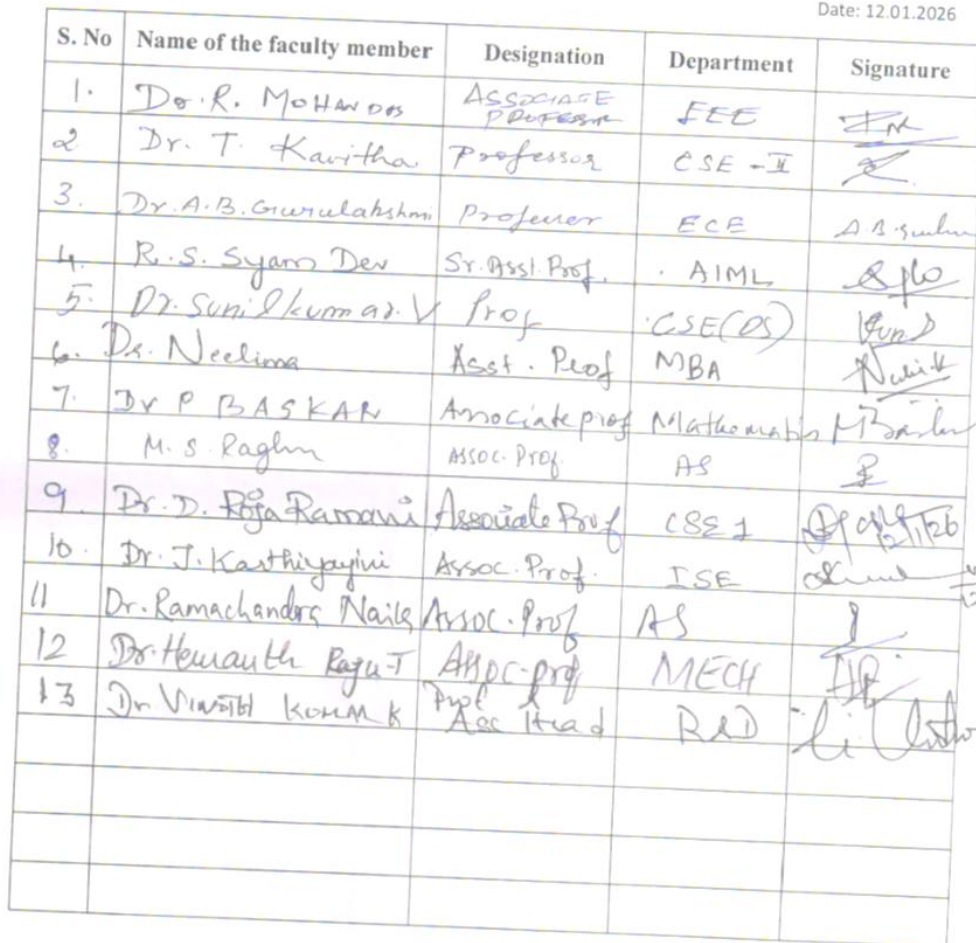 Date: 12.01.2026
S. No Name of the faculty member Designation Department Signature
1. Dr. R. MOHANDOS ASSOCIATE PROFESSOR EEE
2 Dr. T. Kavitha Professor CSE-II
3. Dr. A.B. Gurulakshmi Professor ECE
4. R.S. Syam Dev Sr. Asst. Prof. AIML
5. Dr. Sunilkumar. V Prof CSE(DS)
6. Dr. Neelima Asst. Prof MBA
7. Dr P BASKAR Associate prof Mathematics
8. M.S. Raghu Assoc. Prof. AS
9. Dr. D. Roja Ramani Associate Prof CSE 1
10. Dr. J. Karthiyayini Assoc. Prof. ISE
11 Dr. Ramachandra Naik Assoc. Prof AS
12 Dr. Hemanth Raju-T Assoc-prof MECH
13 Dr K Prof & Asc Head R&D